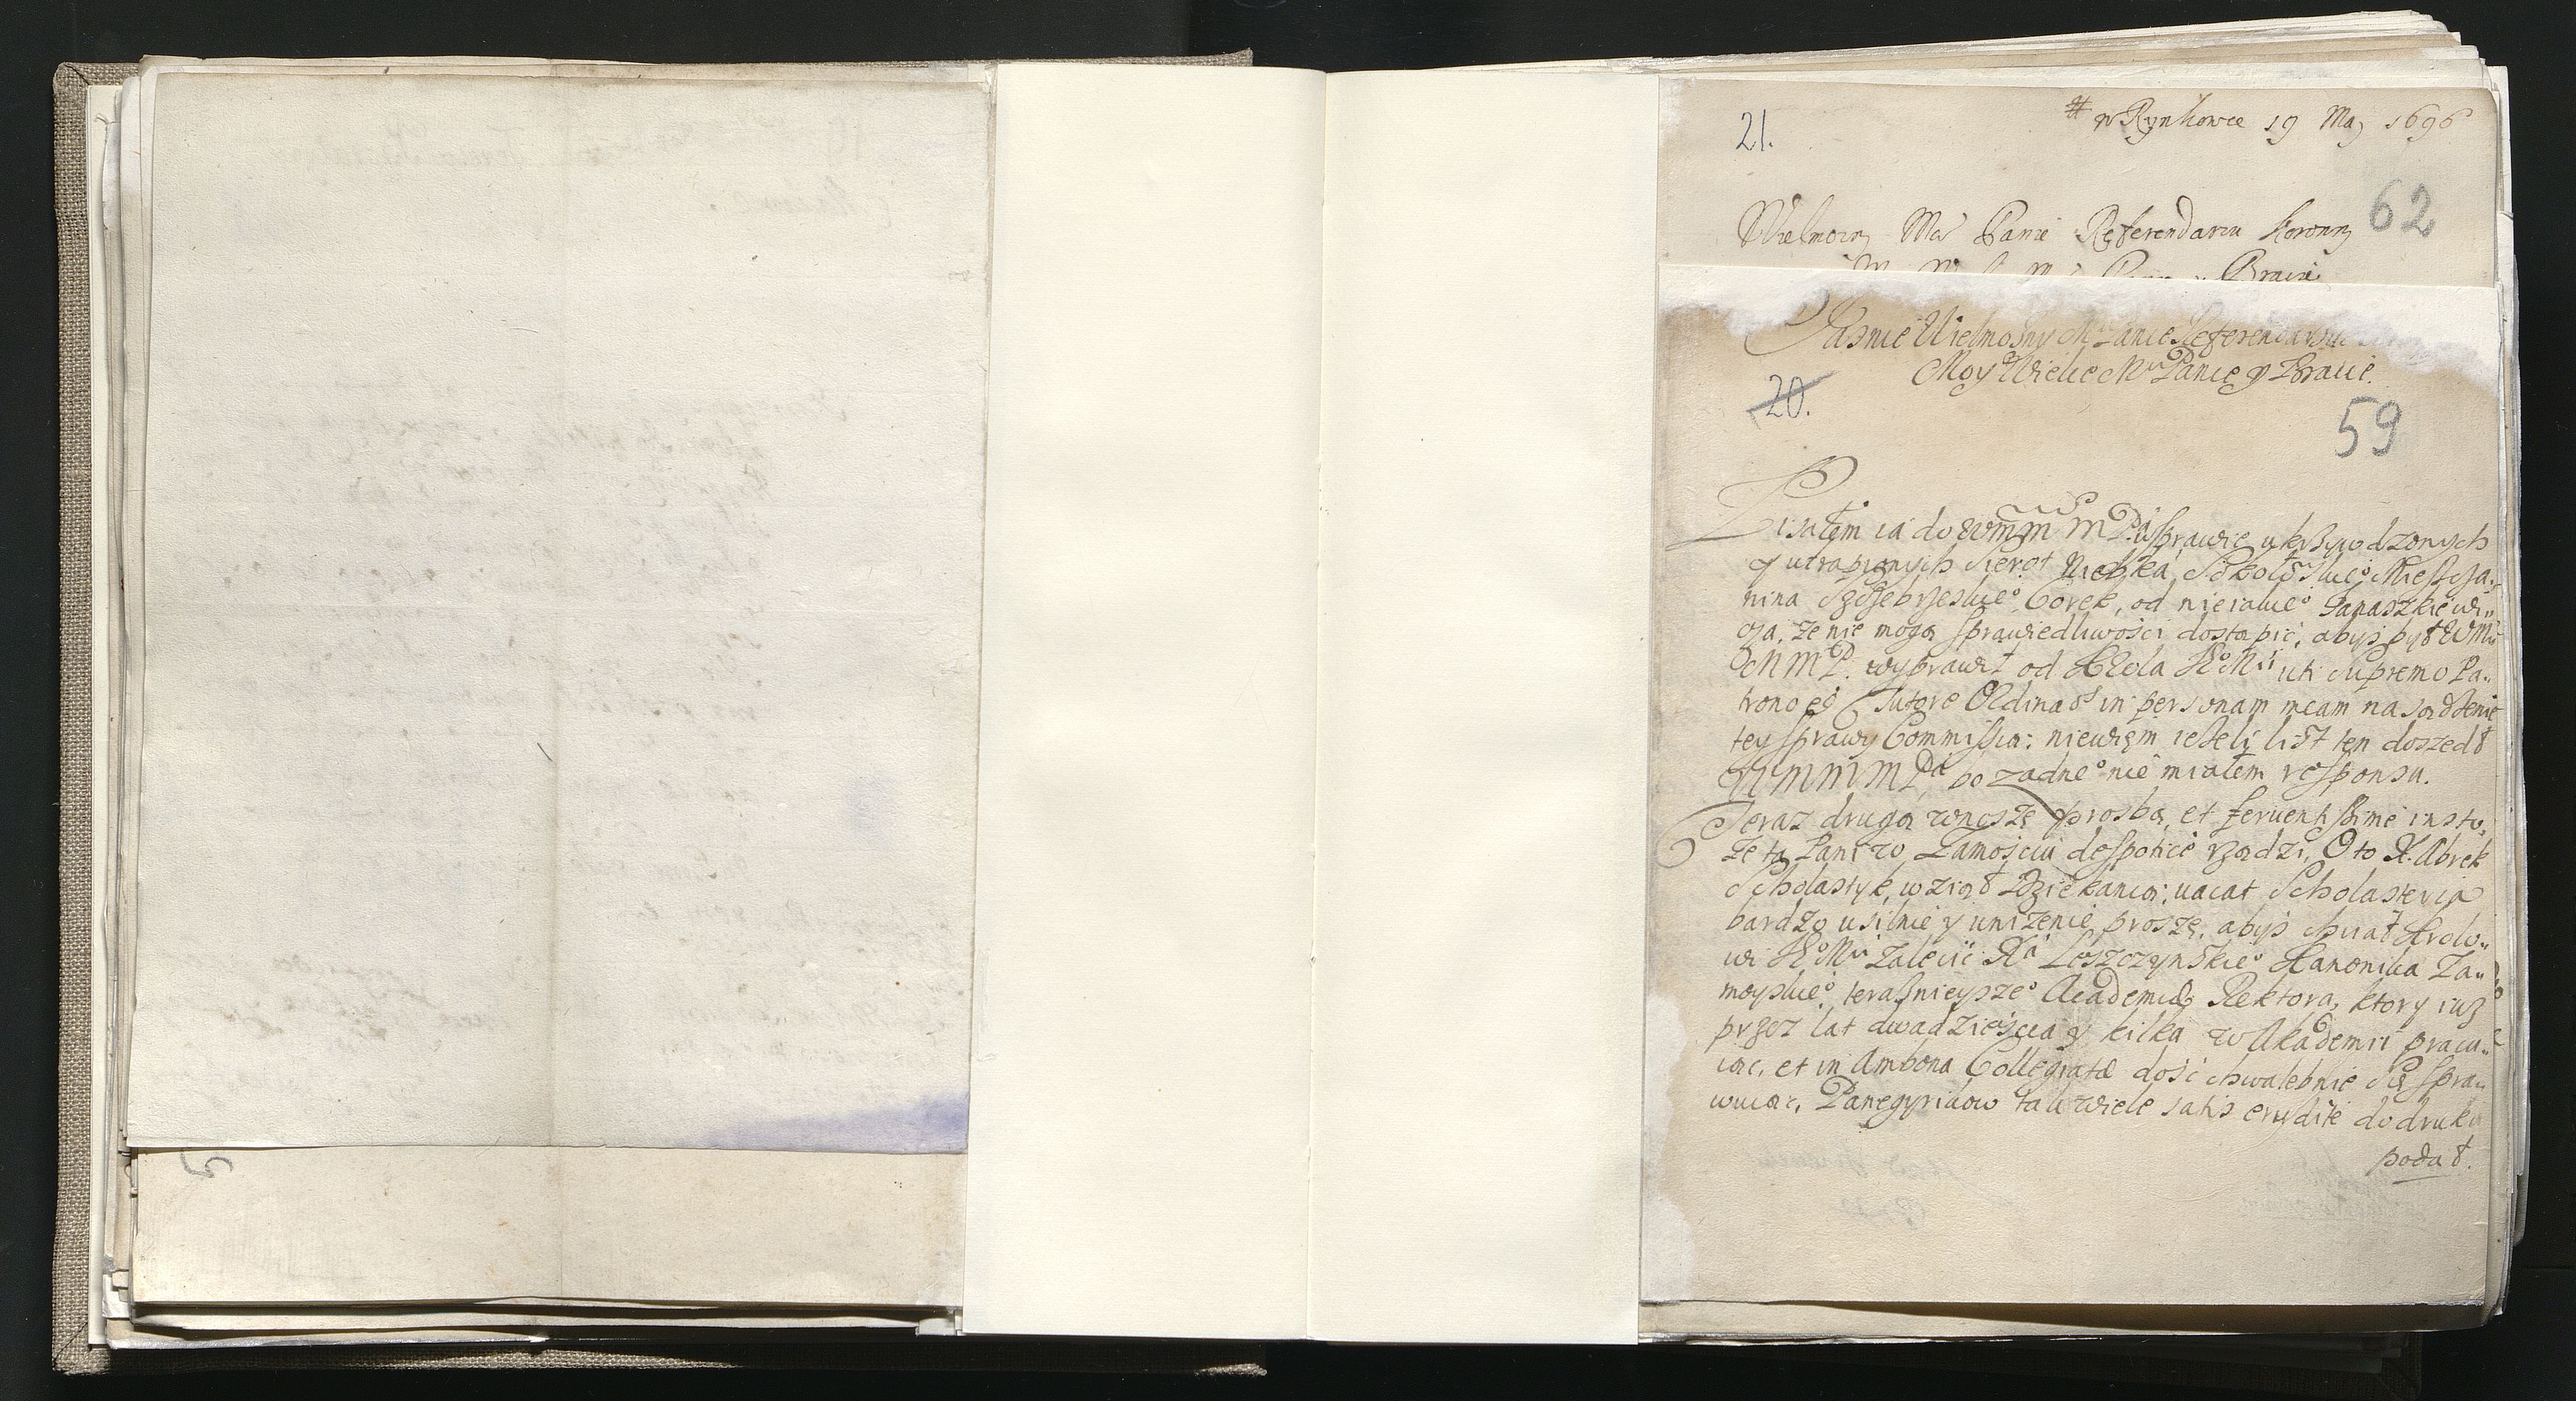 21.
w Rynkowce 19 Maj 1696
62
Wielmozny Mci Panie Referendarzu Koronny
Panie y Bracie
Jasnie Wielmożny Mci Panie Referendarzu
Moy Wielce Mci Panie y Bracie.
20.
59
Pisałem ia do WMM MPa w sprawie ukrzywdzonych
y utrapionych Sierot Mieszcza„
nina Szczebrzeskieo Corek, od nieiakieo Papaszkiewi„
cza, że nie mogą sprawiedliwości dostąpić, abyś był WM
MMP. wyprawił od Krola JeoMci uti Supremo Pa„
trono et Tutore Ordinat in personam meam na sądzenie
tey sprawy Commissią: niewiem ieżeli list ten doszedł
WMMMPa, bo zadneo nie miałem responsu.
Teraz drugą wnoszę prosbę, et ferventissime insto,
że ta Pani w Zamościu despotice rządzi, Oto X. Abrek
Scholastyk, wziął Dziekanią; vacat Scholasteria
bardzo usilnie y uniżenie proszę, abyś chciał Krolo„
wi JeoMci zalecić Xa Leszczynskieo Kanonika Za„
moyskieo, teraznieyszeo Academiæ Rektora, ktory iuż
przez lat dwadzieścia y kilka w Akademii pracu„
iąc, et in Ambona Collegiatæ dość chwalebnie się spra„
wuiąc, Panegyrikow tak wiele satis erudite do druku
podał.